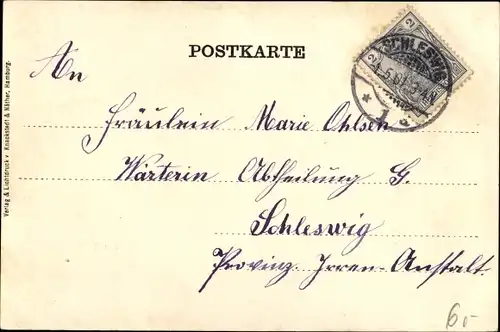 POSTKARTE
An
Fräulein Marie Ohlsen
Wärterin Abtheilung G.
Schleswig
Provinz. Irren-Anstalt.
Verlag & Lichtdruck v. Knackstedt & Näther, Hamburg.
2 2
SCHLESWIG
6.-